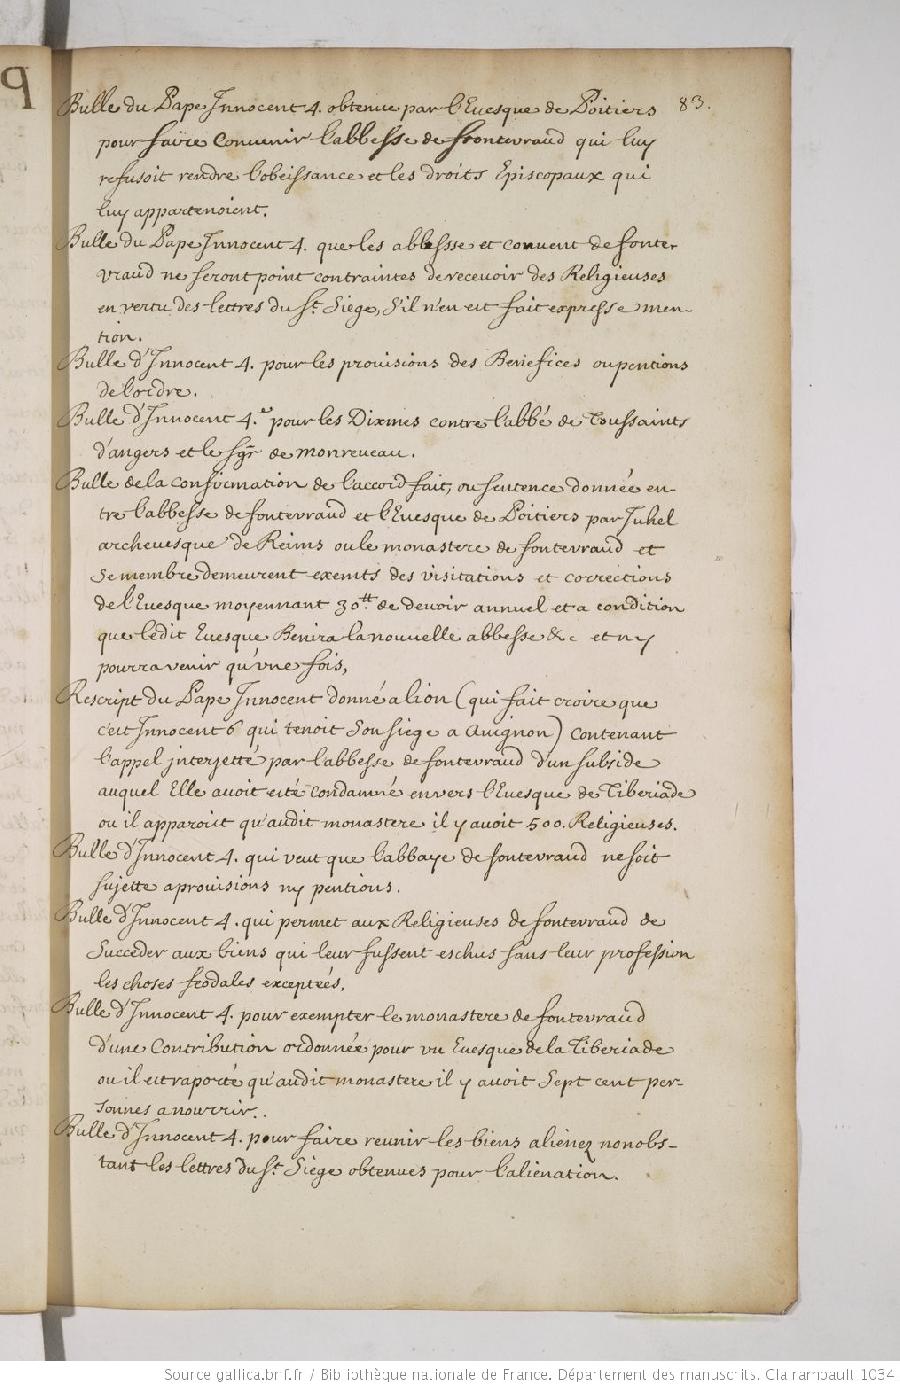 Bulle du Pape Innocent 4. obtenue par l'Evesque de Poitiers 83.
pour faire convenir l'abbesse de frontevraud qui luy
refusoit rendre l'obeissance et les droits Episcopaux qui
luy appartenoient.
Bulle du Pape Innocent 4. que les abbesse et convent de fonte-
vraud ne seront point contraintes de recevoir des Religieuses
en vertu des lettres du St Siege, s'il n'en est fait expresse men-
tion.
Bulle d'Innocent 4. pour les provisions des Benefices ou pentions
de l'ordre.
Bulle d'Innocent 4.e pour les Dixmes contre l'abbé de Toussaints
d'angers et le sgr de monreveau.
Bulle de la confirmation de l'accord fait, ou sentence donnée en-
tre l'abbesse de fontevraud et l'Evesque de Poitiers par Juhel
archevesque de Reims ou le monastere de fontevraud et
se membre demeurent exemts des visitations et corrections
de l'Evesque moyennant 30.tt de devoir annuel et a condition
que ledit Evesque Benira la nouvelle abbesse &c et n'y
pourra venir qu'une fois,
Rescript du Pape Innocent donné a lion (qui fait croire que
c'est Innocent 6 qui tenoit son siege a Avignon) contenant
l'appel interjetté par l'abbesse de fontevraud d'un subside
auquel Elle avoit esté condamné envers l'Evesque de Tiberiade
ou il apparoist qu'audit monastere il y avoit 500. Religieuses.
Bulle d'Innocent 4. qui veut que l'abbaye de fontevraud ne soit
sujette a provisions ny pentions.
Bulle d'Innocent 4. qui permet aux Religieuses de fontevraud de
succeder aux biens qui leur fussent eschus sans leur profession
les choses feodales exceptées.
Bulle d'Innocent 4. pour exempter le monastere de fontevraud
d'une contribution ordonnée pour un Evesque de la Tiberiade
ou il est raporté qu'audit monastere il y avoit sept cent per-
sonnes a nourrir..
Bulle d'Innocent 4. pour faire reunir les biens alienez nonobs-
tant les lettres du St Siege obtenues pour l'alienation.
Source gallica.bnf.fr / Bibliothèque nationale de France. Département des manuscrits. Clairambault 1034